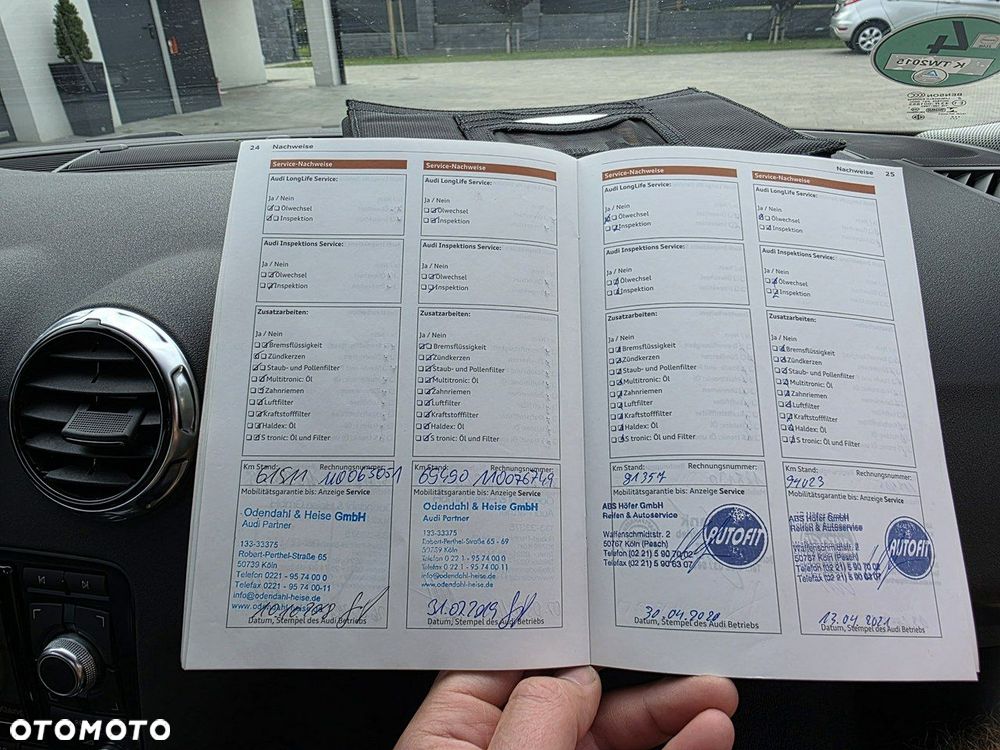 24 Nachweise
Service-Nachweise
Audi LongLife Service:
Ja / Nein
Ölwechsel
Inspektion
Audi Inspektions Service:
Ja / Nein
Ölwechsel
Inspektion
Zusatzarbeiten:
Ja / Nein
Bremsflüssigkeit
Zündkerzen
Staub- und Pollenfilter
Multitronic: Öl
Zahnriemen
Luftfilter
Kraftstofffilter
Haldex: Öl
S tronic: Öl und Filter
Km Stand: Rechnungsnummer:
61511 110065051
Mobilitätsgarantie bis: Anzeige Service
Odendahl & Heise GmbH
Audi Partner
133-33375
Robert-Perthel-Straße 65
50739 Köln
Telefon 0221 - 95 74 00 0
Telefax 0221 - 95 74 00-11
info@odendahl-heise.de
www.odendahl-heise.de
Datum, Stempel des Audi Betriebs
Service-Nachweise
Audi LongLife Service:
Ja / Nein
Ölwechsel
Inspektion
Audi Inspektions Service:
Ja / Nein
Ölwechsel
Inspektion
Zusatzarbeiten:
Ja / Nein
Bremsflüssigkeit
Zündkerzen
Staub- und Pollenfilter
Multitronic: Öl
Zahnriemen
Luftfilter
Kraftstofffilter
Haldex: Öl
S tronic: Öl und Filter
Km Stand: Rechnungsnummer:
69490 110076749
Mobilitätsgarantie bis: Anzeige Service
Odendahl & Heise GmbH
Audi Partner
133-33375
Robert-Perthel-Straße 65 - 69
50739 Köln
Telefon 02 21 - 95 74 00 0
Telefax 02 21 - 95 74 00-11
info@odendahl-heise.de
www.odendahl-heise.de
31.02.2019
Datum, Stempel des Audi Betriebs
Nachweise 25
Service-Nachweise
Audi LongLife Service:
Ja / Nein
Ölwechsel
Inspektion
Audi Inspektions Service:
Ja / Nein
Ölwechsel
Inspektion
Zusatzarbeiten:
Ja / Nein
Bremsflüssigkeit
Zündkerzen
Staub- und Pollenfilter
Multitronic: Öl
Zahnriemen
Luftfilter
Kraftstofffilter
Haldex: Öl
S tronic: Öl und Filter
Km Stand: Rechnungsnummer:
81357
Mobilitätsgarantie bis: Anzeige Service
ABS Höfer GmbH
Reifen & Autoservice
Waffenschmidtstr. 2
50767 Köln (Pesch)
Telefon (02 21) 5 90 70 02
Telefax (02 21) 5 90 63 07
AUTOFIT
30.04.2020
Datum, Stempel des Audi Betriebs
Service-Nachweise
Audi LongLife Service:
Ja / Nein
Ölwechsel
Inspektion
Audi Inspektions Service:
Ja / Nein
Ölwechsel
Inspektion
Zusatzarbeiten:
Ja / Nein
Bremsflüssigkeit
Zündkerzen
Staub- und Pollenfilter
Multitronic: Öl
Zahnriemen
Luftfilter
Kraftstofffilter
Haldex: Öl
S tronic: Öl und Filter
Km Stand: Rechnungsnummer:
94023
Mobilitätsgarantie bis: Anzeige Service
ABS Höfer GmbH
Reifen & Autoservice
Waffenschmidtstr. 2
50767 Köln (Pesch)
Telefon (02 21) 5 90 70 02
Telefax (02 21) 5 90 63 07
AUTOFIT
13.04.2021
Datum, Stempel des Audi Betriebs
4
K TW2015
OTOMOTO